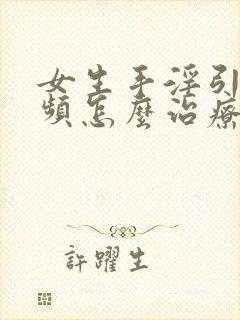 女生手淫引
頻怎麼治療
許躍生